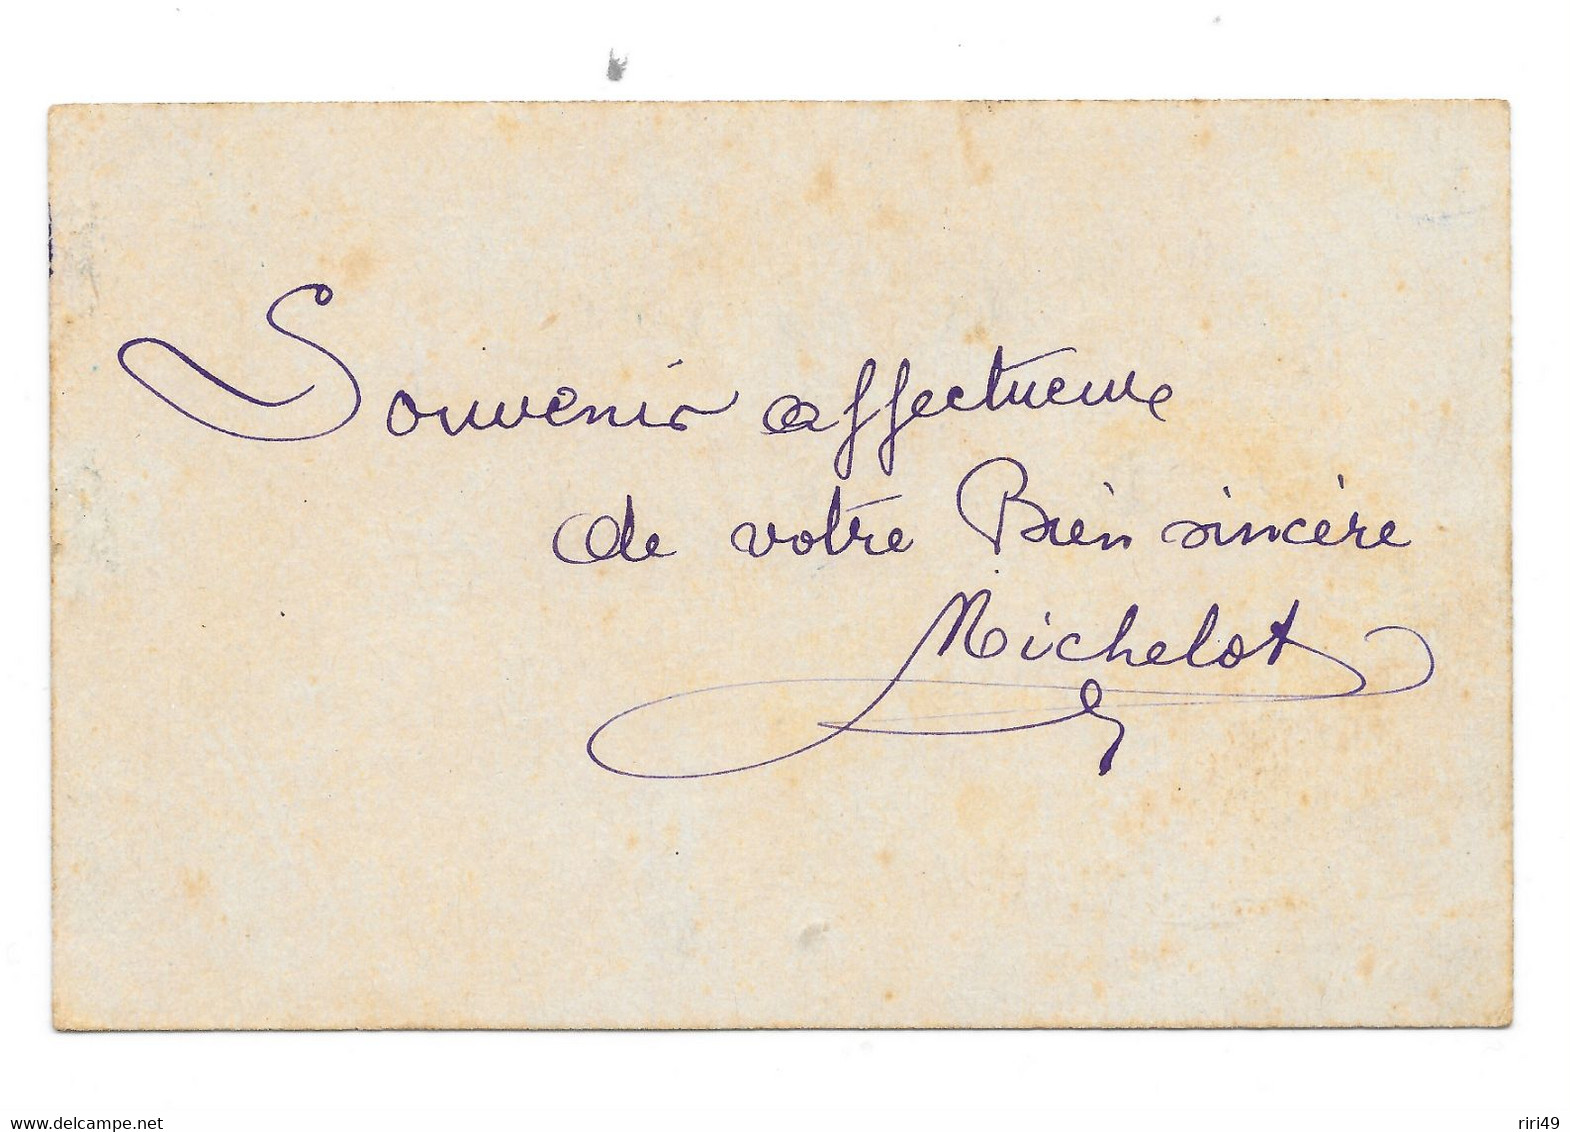 Souvenir affectueux
de votre Bien sincère
Michelot
www.delcampe.net
riri49